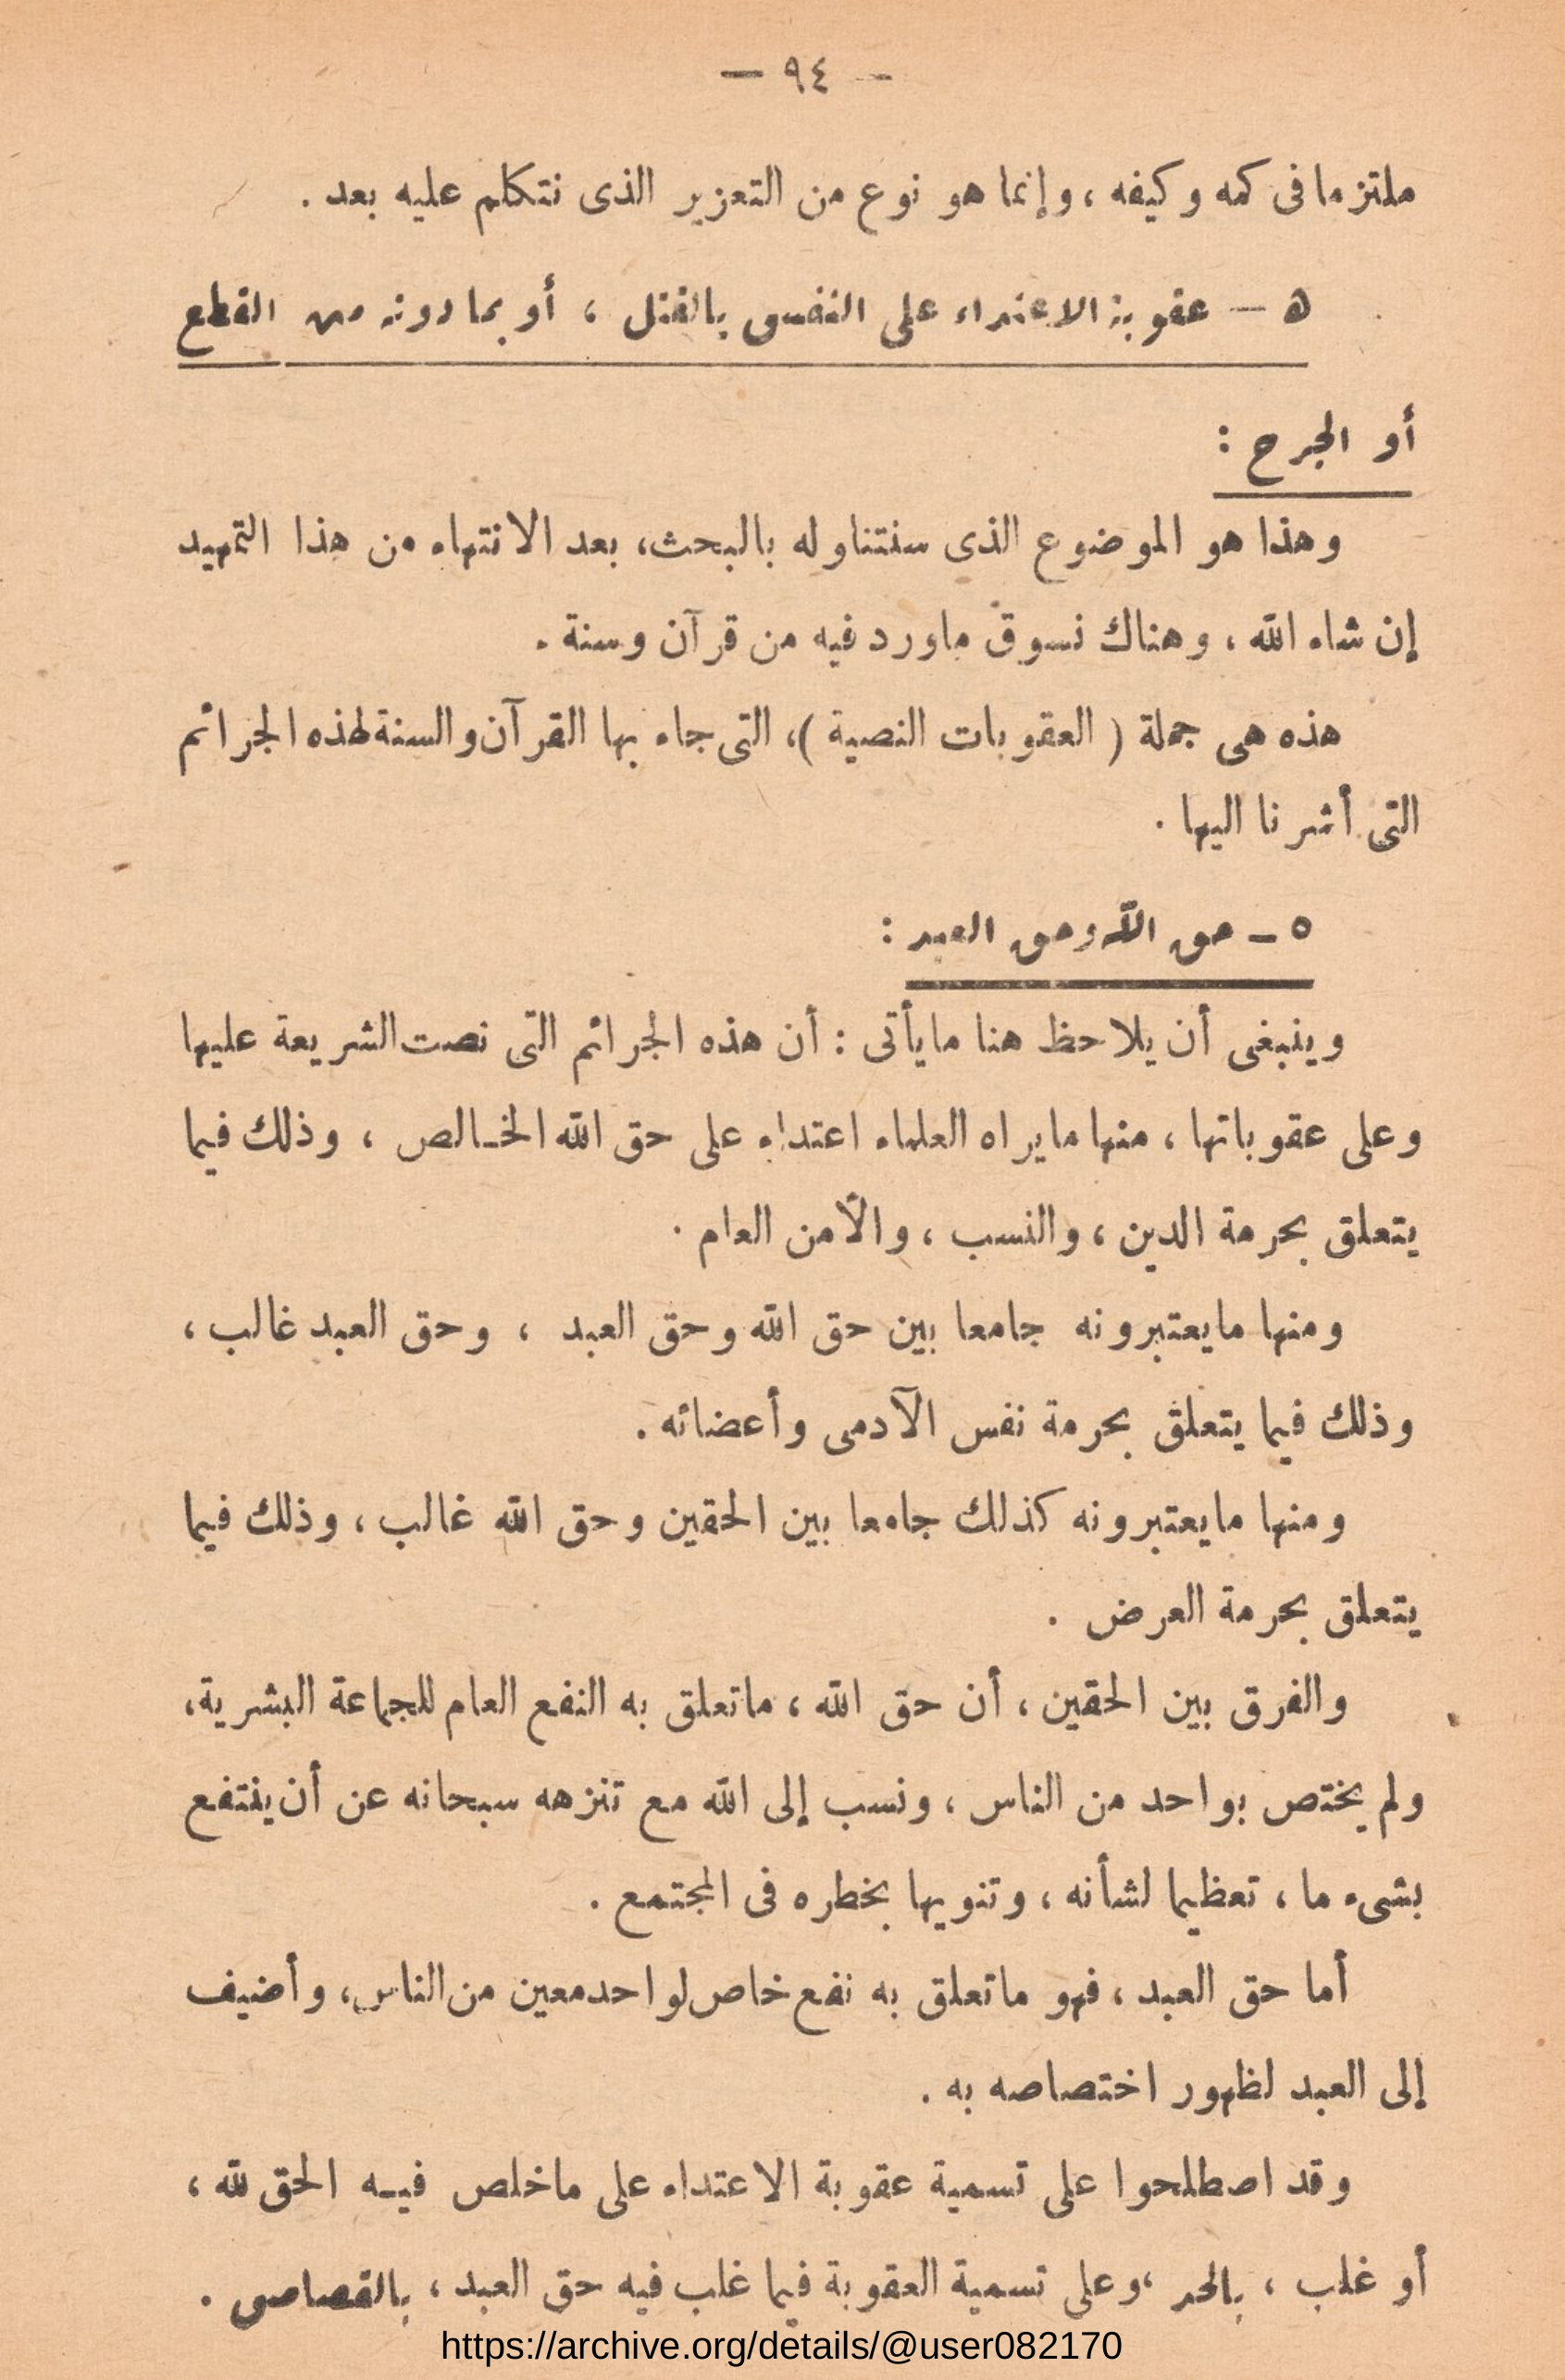 — ٩٤ —
ملتزما فى كمه وكيفه ، وإنما هو نوع من التعزير الذى نتكلم عليه بعد .
ه — عقوبة الاعتداء على النفس بالقتل ، أو بما دونه من القطع
أو الجرح :
وهذا هو الموضوع الذى سنتناوله بالبحث، بعد الانتهاء من هذا التمهيد
إن شاء الله ، وهناك نسوق ماورد فيه من قرآن وسنة .
هذه هى جملة ( العقوبات النصية )، التى جاء بها القرآن والسنة لهذه الجرائم
التى أشرنا اليها .
٥ — حق الله وحق العبد :
وينبغى أن يلاحظ هنا مايأتى : أن هذه الجرائم التى نصت الشريعة عليها
وعلى عقوباتها ، منها مايراه العلماء اعتداء على حق الله الخـالص ، وذلك فيما
يتعلق بحرمة الدين ، والنسب ، والأمن العام .
ومنها مايعتبرونه جامعا بين حق الله وحق العبد ، وحق العبد غالب ،
وذلك فيما يتعلق بحرمة نفس الآدمى وأعضائه .
ومنها مايعتبرونه كذلك جامعا بين الحقين وحق الله غالب ، وذلك فيما
يتعلق بحرمة العرض .
والفرق بين الحقين ، أن حق الله ، ماتعلق به النفع العام للجماعة البشرية،
ولم يختص بواحد من الناس ، ونسب إلى الله مع تنزهه سبحانه عن أن ينتفع
بشىء ما ، تعظيما لشأنه ، وتنويها بخطره فى المجتمع .
أما حق العبد ، فهو ماتعلق به نفع خاص لواحد معين من الناس، وأضيف
إلى العبد لظهور اختصاصه به .
وقد اصطلحوا على تسمية عقوبة الاعتداء على ماخلص فيـه الحق لله ،
أو غلب ، بالحد ، وعلى تسمية العقوبة فيما غلب فيه حق العبد ، بالقصاص .
https://archive.org/details/@user082170